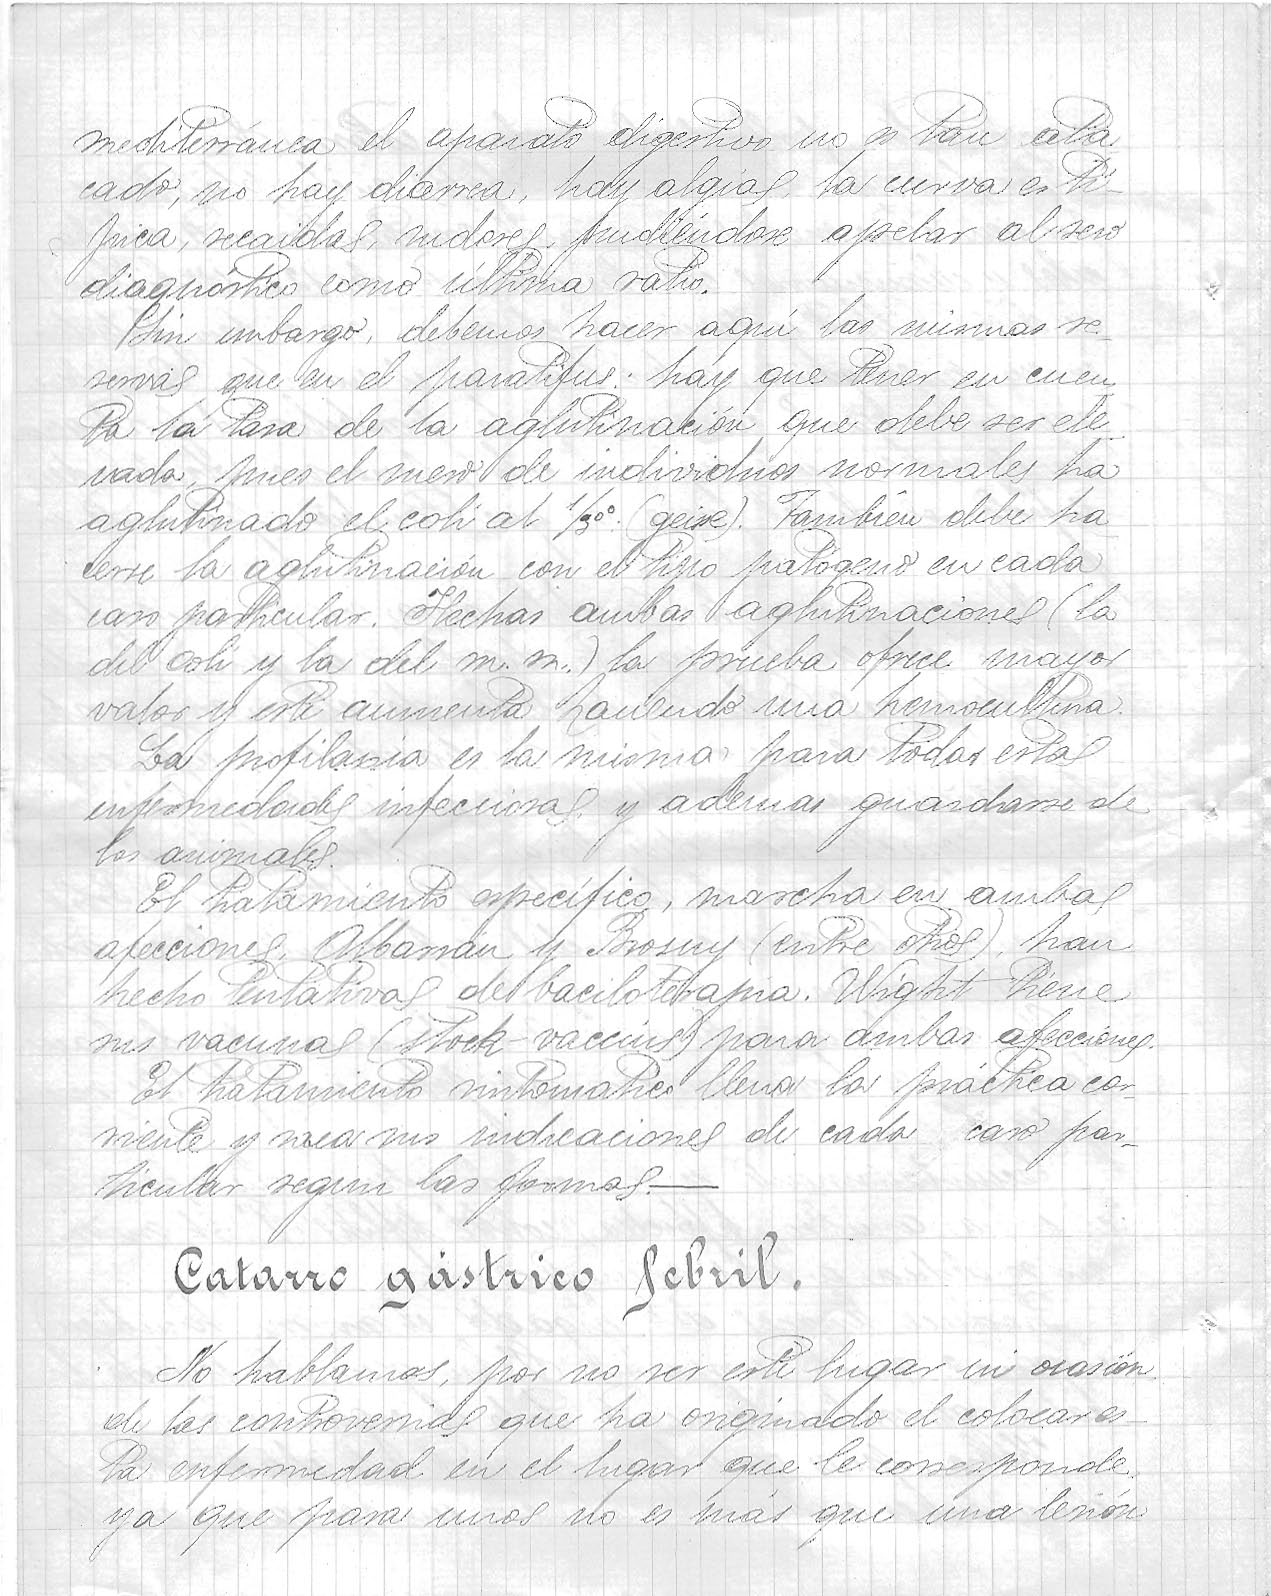 mediterránea el aparato digestivo no es tan ata
cado, no hay diarrea, hay algias, la curva es tí-
pica, recaidas, sudores, pudiéndose apelar al sero
diagnóstico como última ratio.
Sin embargo, debemos hacer aquí las mismas re-
servas que en el paratifus: hay que tener en cuen
ta la tasa de la aglutinación que debe ser ele
vada, pues el suero de individuos normales ha
aglutinado el coli al. También debe ha
cerse la aglutinación con el tipo patógeno en cada
caso particular. Hechas ambas aglutinaciones (la
del coli y la del m. m.) la prueba ofrece mayor
valor y este aumenta haciendo una hemocultina.
La profilaxia es la misma para todas estas
enfermedades infecciosas, y ademas guardarse de
los animales.
El tratamiento específico, marcha en ambas
afecciones. Albarrán y (entre otros), han
hecho tentativas de baciloterapia. Wight tiene
sus vacunas (stock-vaccins) para ambas afecciones.
El tratamiento sintomatico llena la práctica cor-
riente y saca sus indicaciones de cada caso par-
ticular segun las formas.—
Catarro gástrico febril.
No hablamos, por no ser este lugar ni ocasión
de las controversias que ha originado el colocar es-
ta enfermedad en el lugar que le corresponde,
ya que para unos no es más que una lesión